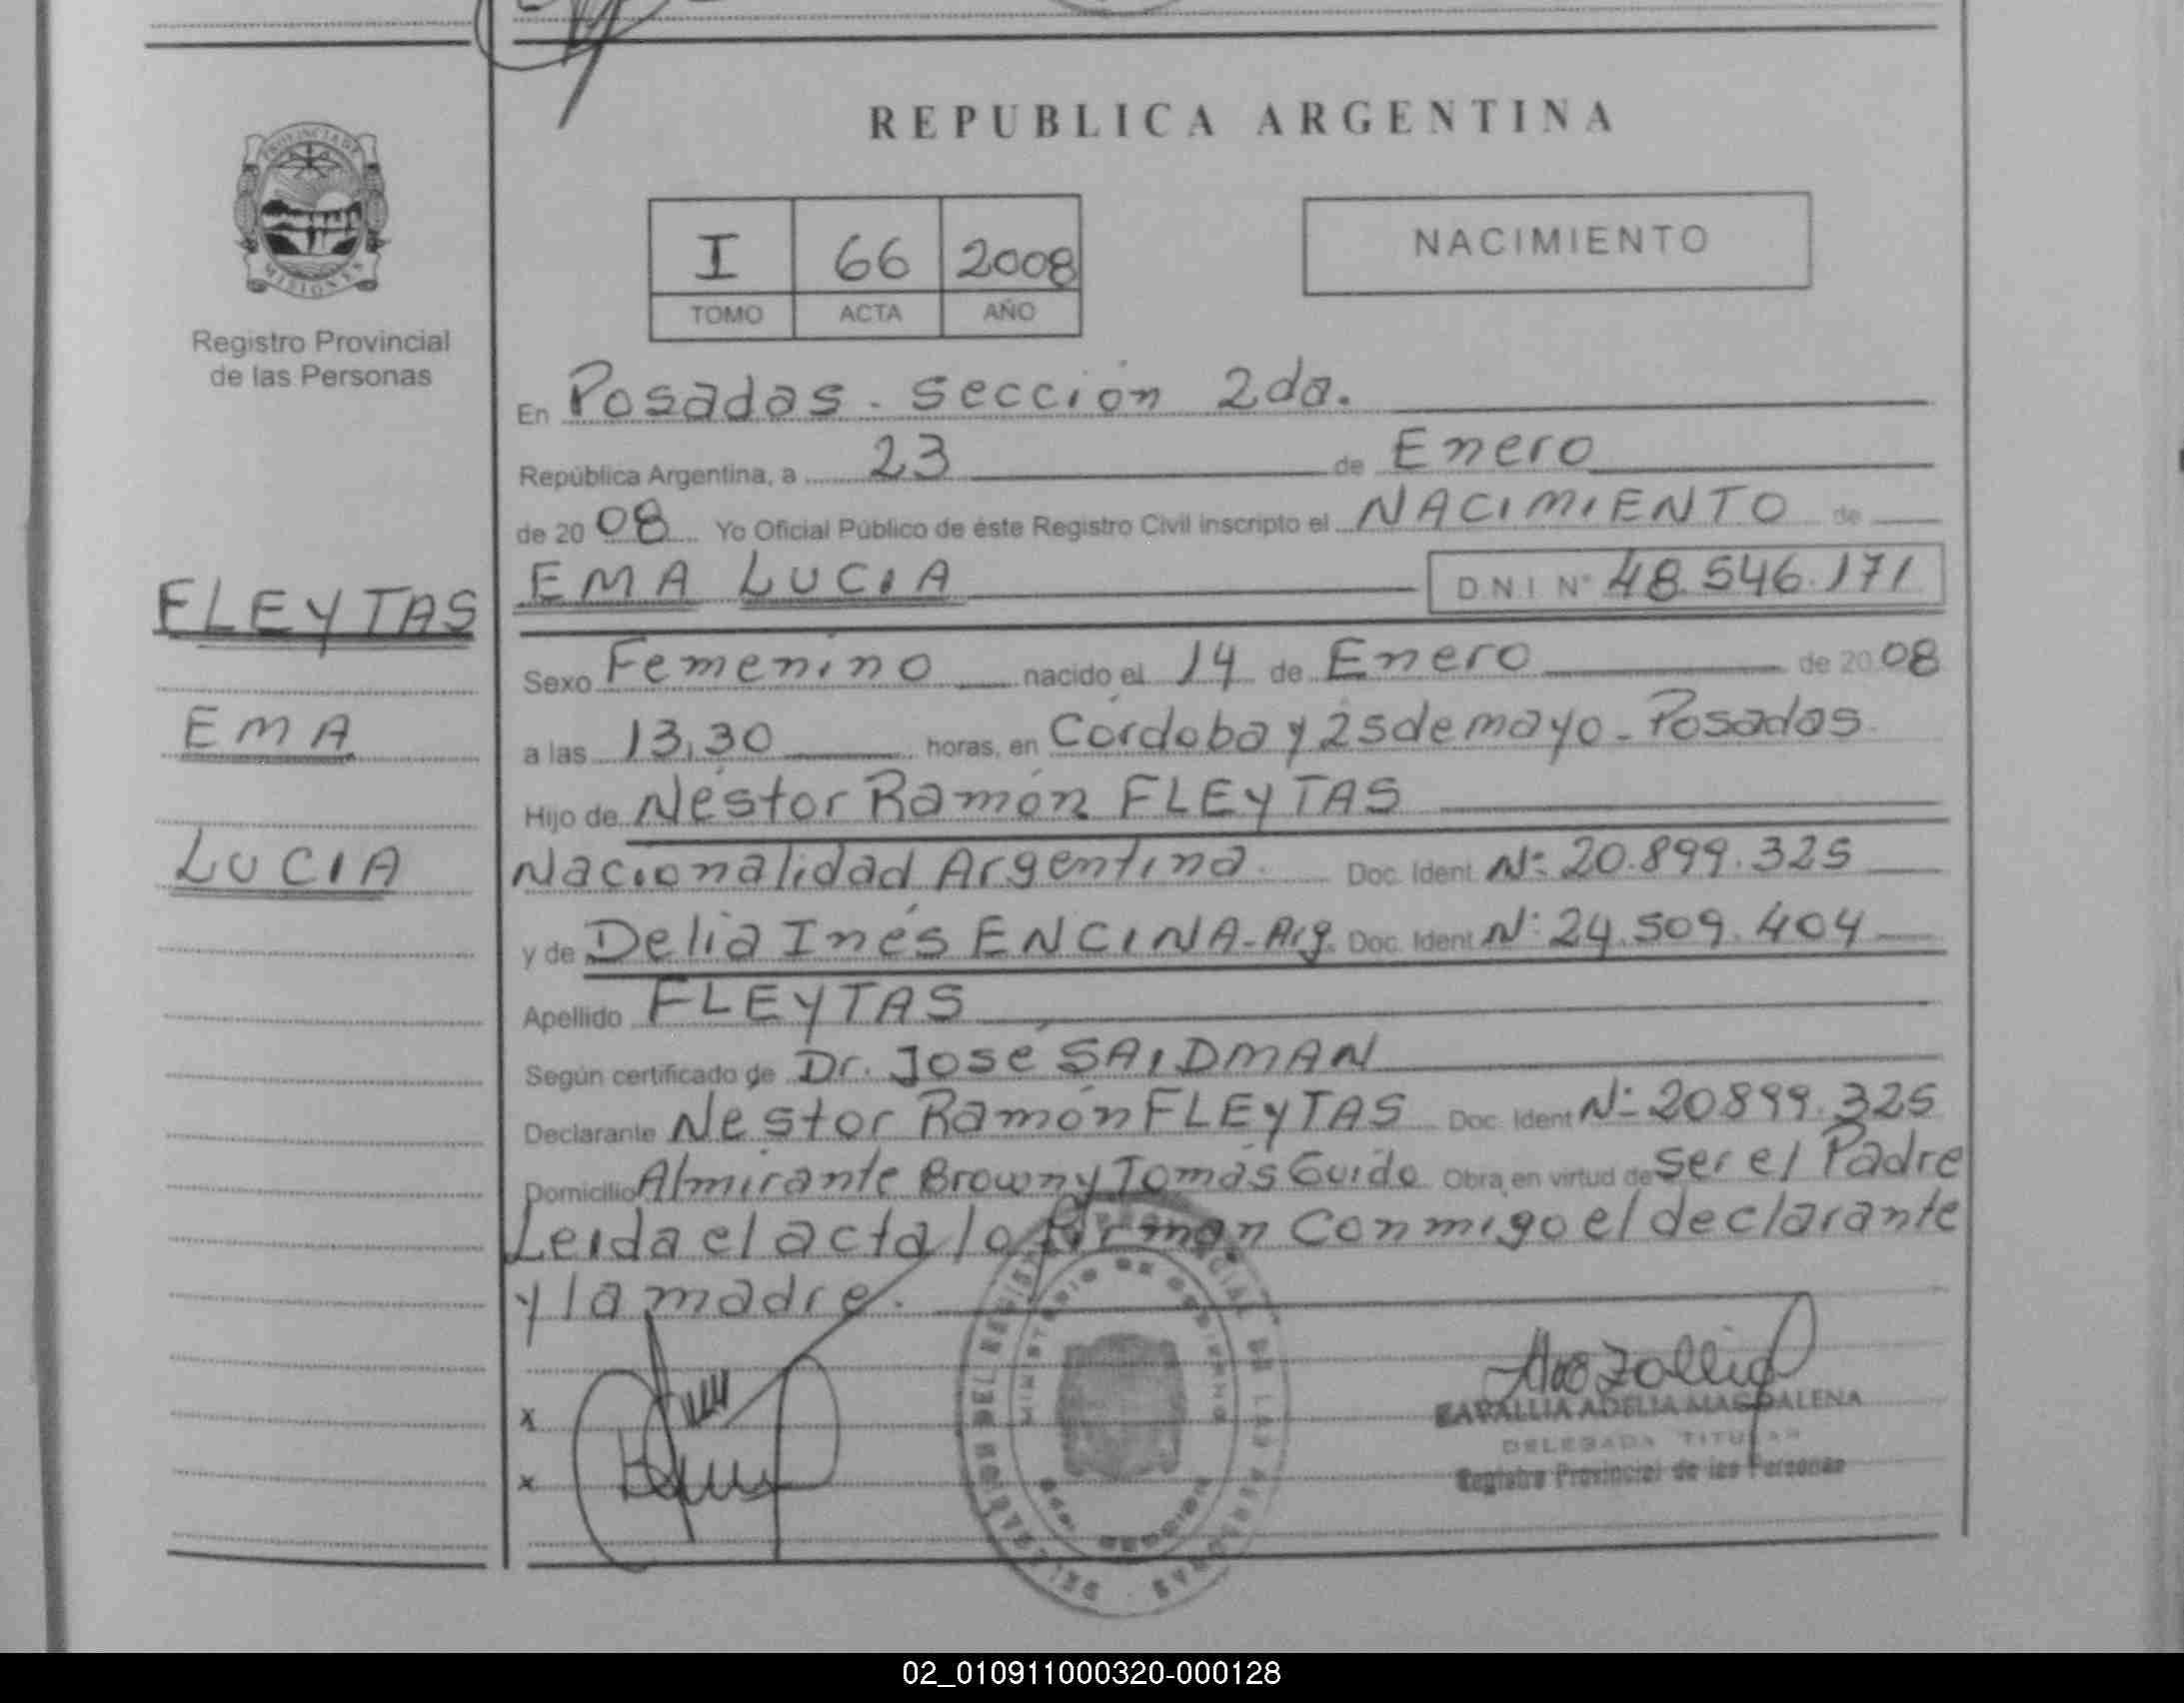 REPUBLICA ARGENTINA
PROVINCIA DE
MISIONES
Registro Provincial
de las Personas
I 66 2008
TOMO ACTA AÑO
NACIMIENTO
En Posadas - sección 2da.
República Argentina, a 23 de Enero
de 2008 Yo Oficial Público de éste Registro Civil inscripto el NACIMIENTO de
EMA LUCIA D.N.I Nº 48.546.171
FLEYTAS
EMA
LUCIA
Sexo Femenino nacido el 14 de Enero de 2008
a las 13,30 horas, en Córdoba y 25 de mayo - Posadas
Hijo de Néstor Ramón FLEYTAS
Nacionalidad Argentina. Doc. Ident. Nº 20.899.325
y de Delia Inés ENCINA - Arg. Doc. Ident. Nº 24.509.404
Apellido FLEYTAS
Según certificado de Dr. José SAIDMAN
Declarante Nestor Ramón FLEYTAS Doc. Ident Nº 20899.325
Domicilio Almirante Brown y Tomás Guido Obra en virtud de ser el Padre
Leida el acta lo firman conmigo el declarante
y la madre.
x
x
ADELIA MAGDALENA
DELEGADA TITULAR
Registro Provincial de las Personas
02_010911000320-000128